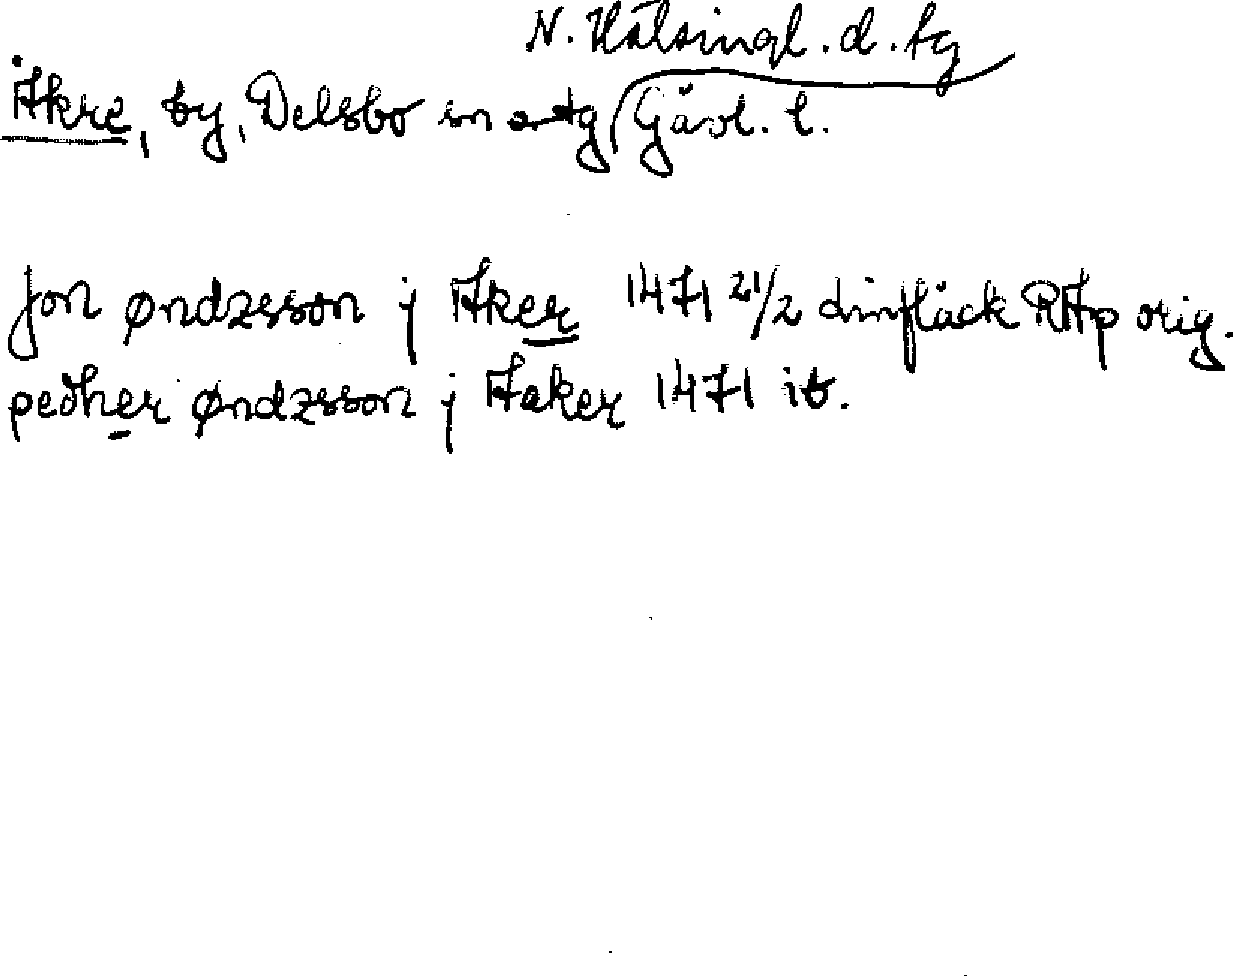 N. Hälsingl. d. tg
Åkre, by, Delsbo sn o tg Gävl. l.
Jon øndzsson j Aker 1471 21/2 dimfläck RAp orig.
pedher øndzsson j Aaker 1471 ib.